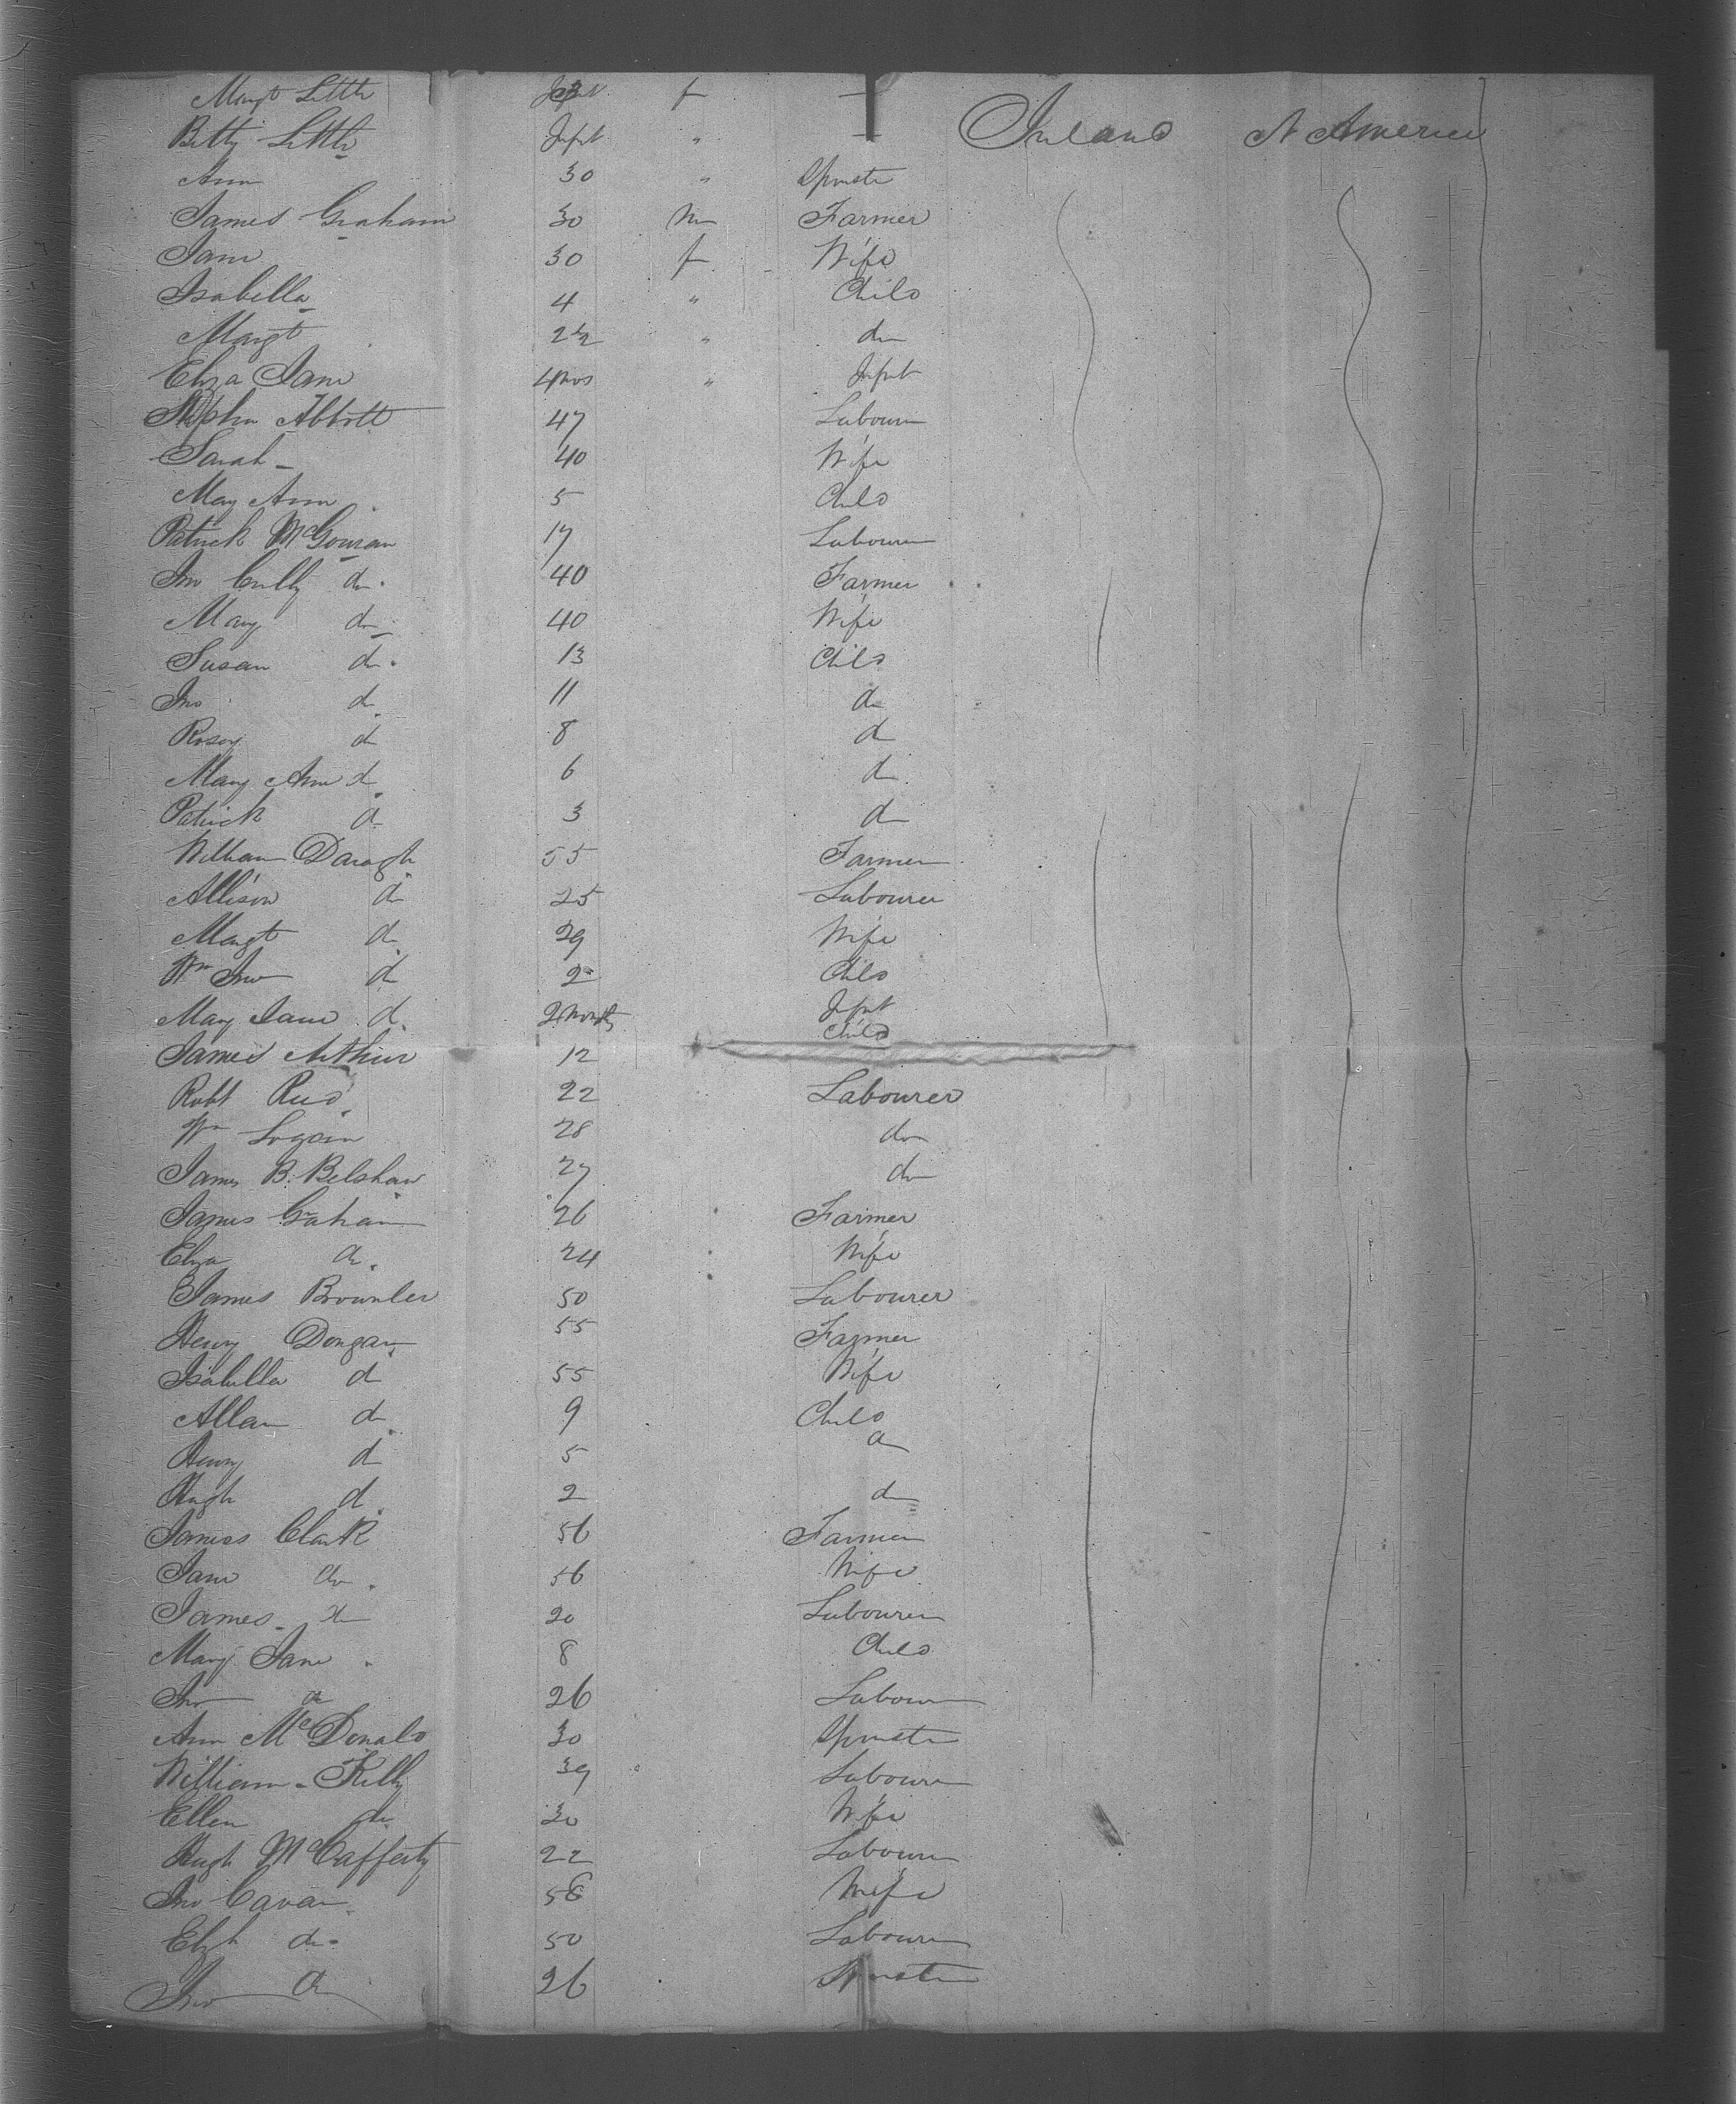 Margt Little 3 f
Betty Little Inft " Ireland N America
Ann 30 " Spinster
James Graham 30 m Farmer
Jane 30 f Wife
Isabella 4 " Child
Margt 2 1/2 " do
Eliza Jane 4 Mos " Infnt
Stephen Abbott 47 Labourer
Sarah 40 Wife
Mary Ann 5 Child
Patrick McGouran 17 Labourer
Jno Cully do 40 Farmer
Mary do 40 Wife
Susan do 13 Child
Jno do 11 do
Rosey do 8 do
Mary Ann do 6 do
Patrick do 3 do
William Daragh 55 Farmer
Allison do 25 Labourer
Margt do 29 Wife
Wm Jno do 2 Child
Mary Jane do 2 Months Infnt
James Arthur 12 Child
Robt Reid 22 Labourer
Wm Logan 28 do
James B. Belshaw 27 do
James Graham 26 Farmer
Eliza do 24 Wife
James Brownlee 50 Labourer
Henry Dongan 55 Farmer
Isabella do 55 Wife
Allan do 9 Child
Henry do 5 do
Hugh do 2 do
James Clark 56 Farmer
Jane do 56 Wife
James do 20 Labourer
Mary Jane " 8 Child
Jno do 26 Labourer
Ann McDonald 30 Spinster
William Kelly 39 Labourer
Ellen do 30 Wife
Hugh McCafferty 22 Labourer
Jno Cavan 56 Wife
Elizh do 50 Labourer
Jno do 26 Spinster